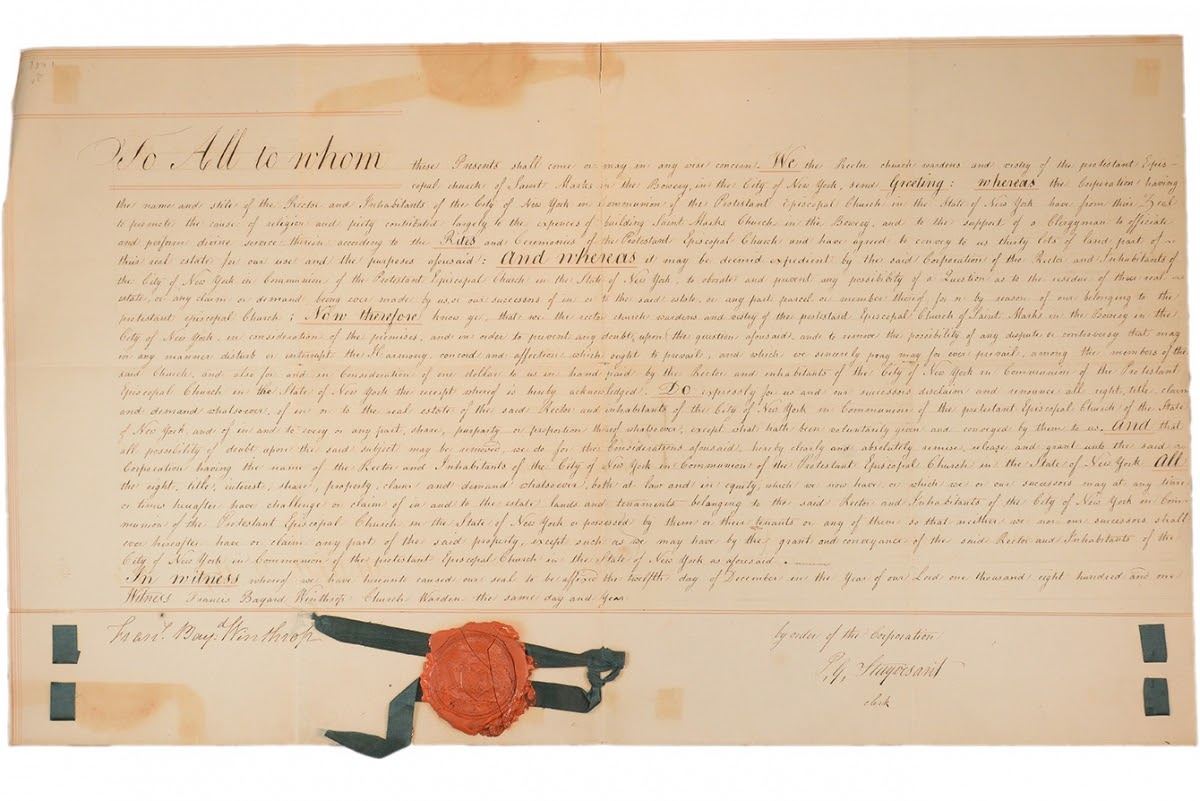 To All to whom these Presents shall come or may in any wise concern. We the Rector church wardens and vestry of the protestant Epis-
copal church of Saint Marks in the Bowery, in the City of New York, send Greeting: whereas the Corporation having
the name and stile of the Rector and Inhabitants of the City of New York in Communion of the Protestant Episcopal Church in the State of New York have from their Zeal
to promote the cause of religion and piety contributed largely to the expences of building Saint Marks Church in the Bowery, and to the support of a Clergyman to officiate
and perform divine service therein according to the Rites and Ceremonies of the Protestant Episcopal Church and have agreed to convey to us thirty Lots of land, part of
their real estate for our use and the purposes aforesaid: And whereas it may be deemed expedient by the said Corporation of the Rector and Inhabitants of
the City of New York in Communion of the Protestant Episcopal Church in the State of New York, to obviate and prevent any possibility of a Question as to the residue of their real
estate, or any claim or demand being ever made by us, or our successors of in or to the said estate, or any part parcel or member thereof, for or by reason of our belonging to the
protestant episcopal Church; Now therefore know ye, that we the rector church wardens and vestry of the protestant Episcopal Church of Saint Marks in the Bowery in the
City of New York, in consideration of the premises, and in order to prevent any doubt, upon the question aforesaid, and to remove the possibility of any dispute or controversy that may
in any manner disturb or interrupt the Harmony, concord and affection which ought to prevail, and which we sincerely pray may for ever prevail, among the members of the
said Church, and also for and in Consideration of one dollar to us in hand paid by the Rector and inhabitants of the City of New York in Communion of the Protestant
Episcopal Church in the State of New York the receipt whereof is hereby acknowledged. Do expressly for us and our successors disclaim and renounce all right, title, claim
and demand whatsoever, of in or to the real estate of the said Rector and inhabitants of the City of New York in Communion of the protestant Episcopal Church of the State
of New York, and of in and to every or any part, share, purparty or proportion thereof whatsoever, except what hath been voluntarily given and conveyed by them to us. And that
all possibility of doubt upon the said subject may be removed, we do for the Considerations aforesaid, hereby clearly and absolutely remise, release and grant unto the said
Corporation having the name of the Rector and Inhabitants of the City of New York in Communion of the Protestant Episcopal Church in the State of New York All
the right, title, interest, share, property, claim and demand whatsoever, both at law and in equity, which we now have, or which we or our successors may at any time
or times hereafter have challenge or claim of in and to the estate, lands and tenaments belonging to the said Rector and Inhabitants of the City of New York in Com-
munion of the Protestant Episcopal Church in the State of New York or possessed by them or their tenants or any of them so that neither we nor our successors shall
ever hereafter have or claim any part of the said property, except such as we may have by the grant and conveyance of the said Rector and Inhabitants of the
City of New York in Communion of the protestant Episcopal Church in the State of New York as aforesaid.
In witness whereof we have hereunto caused our seal to be affixed the twelfth day of December in the Year of our Lord one thousand eight hundred and one
Witness Francis Bayard Winthrop Church Warden the same day and Year
Fran.s Bay.d Winthrop
by order of the Corporation
P. G. Stuyvesant
clerk